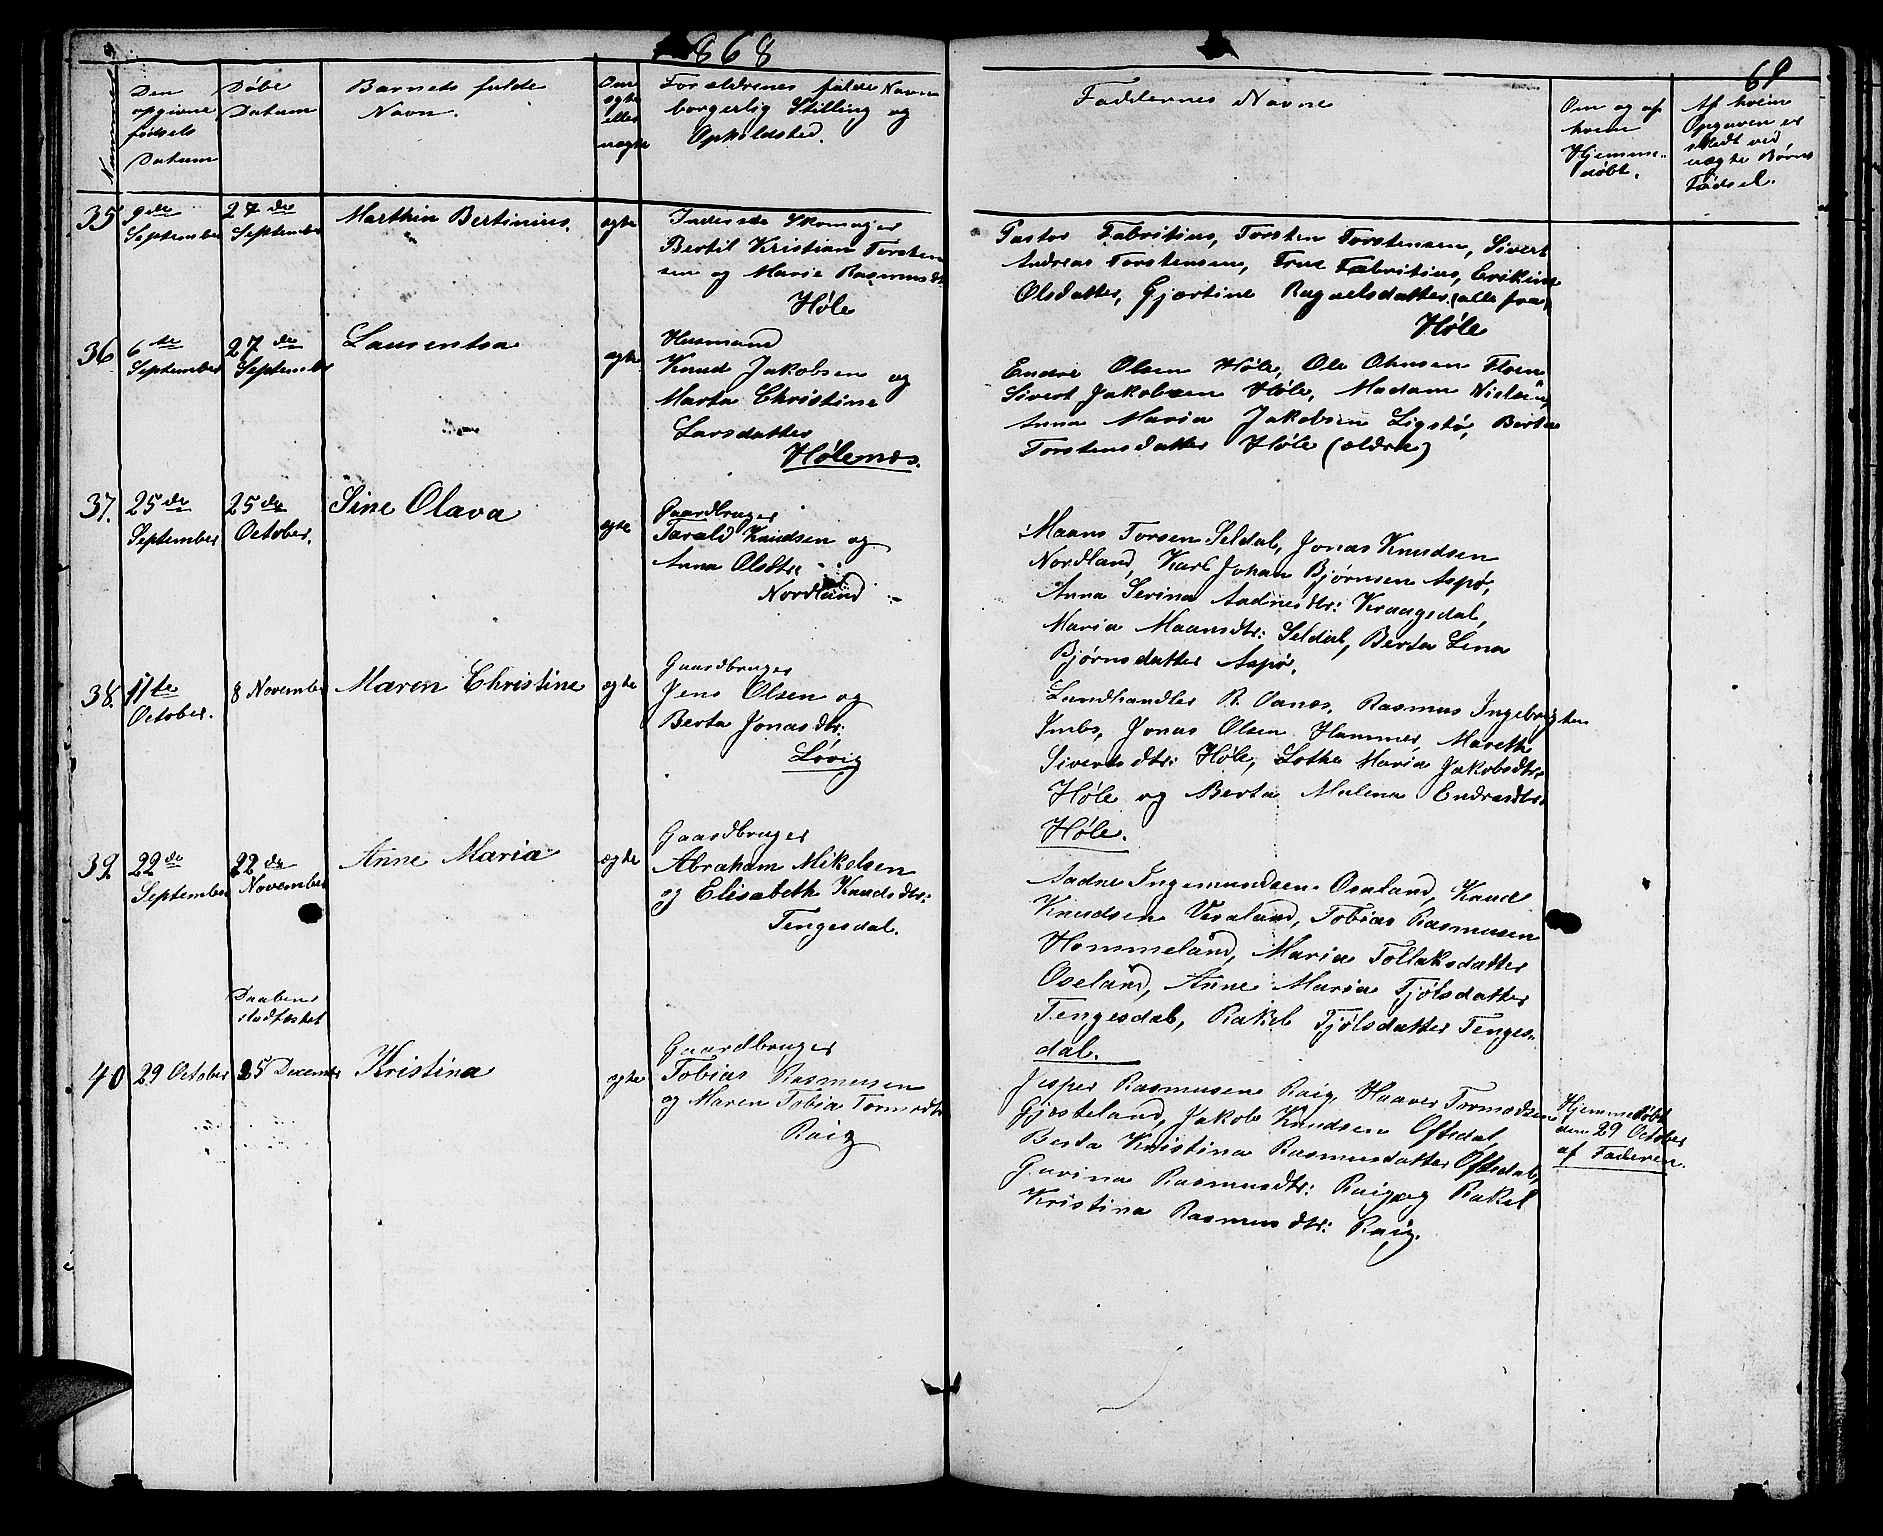 868
69
Nummer
Den
opgivne
fødsels
Datum
Døbe
Datum
Barnets fulde
Navn.
Om
ægte
eller
uægte
Forældrenes fulde Navn
borgerlig Stilling og
Opholdsted.
Faddernes Navne
Om og af
hvem
Hjemme-
døbt.
Af hvem
Opgaven er
skedt ved
uægte Børns
Fødsel.
35 9de September
27de September
Marthin Bertinius.
ægte
Inderste Skomager
Bertil Kristian Torsten
sen og Marie Rasmusdt
Høle
Pastor Fabritius, Torsten Torstensen, Sivert
Andreas Torstensen, Frue Fabritius, Erikine
Olsdatter, Gjærtine Ragnelsdatter (alle fra)
Høle
36 6te September
27de September
Laurentsa
ægte
Husmand
Knud Jakobsen og
Marta Christine
Larsdatter
Hølenæs.
Endre Olsen Høle, Ole Olmsen Floen
Sivert Jakobsen Høle, Madam Nielsen,
Anna Maria Jakobsen Ligstø, Berta
Torstensdatter Høle (ældre)
37. 25de September
25de October.
Sine Olava
ægte
Gaardbruger
Tarald Knudsen og
Anna Olsdtr
Nordland
Maans Torsen Seldal, Jonas Knudsen
Nordland, Karl Johan Bjørnsen Aspø,
Anna Serina Aadnesdtr: Kraagedal,
Maria Maansdtr: Seldal, Berta Lena
Bjørnsdatter Aspø.
38. 11te October.
8 November
Maren Christine
ægte
Gaardbruger
Jens Olsen og
Berta Jonasdtr:
Løvig
Landhandler R. Aanes, Rasmus Ingebrigtsen
Imbs, Jonas Olsen Hammer, Marethe
Siversdtr: Høle, Lothe Maria Jakobsdtr:
Høle og Berta Malena Endresdtr:
Høle.
39. 22de September
22de November
Anne Maria
ægte
Gaardbruger
Abraham Mikelsen
og Elisabeth Knudsdtr:
Tengesdal.
Aadne Ingemundsen Oseland, Knud
Knudsen Vesaland, Tobias Rasmusen
Hommeland, Maria Tollaksdatter
Oseland, Anne Maria Tjølsdatter
Tengesdal, Rakel Tjølsdatter Tenges-
dal.
Daaben
stadfæstet
40 29 October
25 December
Kristina
ægte
Gaardbruger
Tobias Rasmusen
og Maren Tobia Tormodsdtr
Røig
Jesper Rasmusen Røig, Haaver Tormodsen
Gjøsteland, Jakob Knudsen Oftedal,
Berta Kristina Rasmusdatter Oftedal,
Gurina Rasmusdtr: Røig og Rakel
Kristina Rasmusdtr: Røig.
Hjemmedøbt
den 29 October
af Faderen.